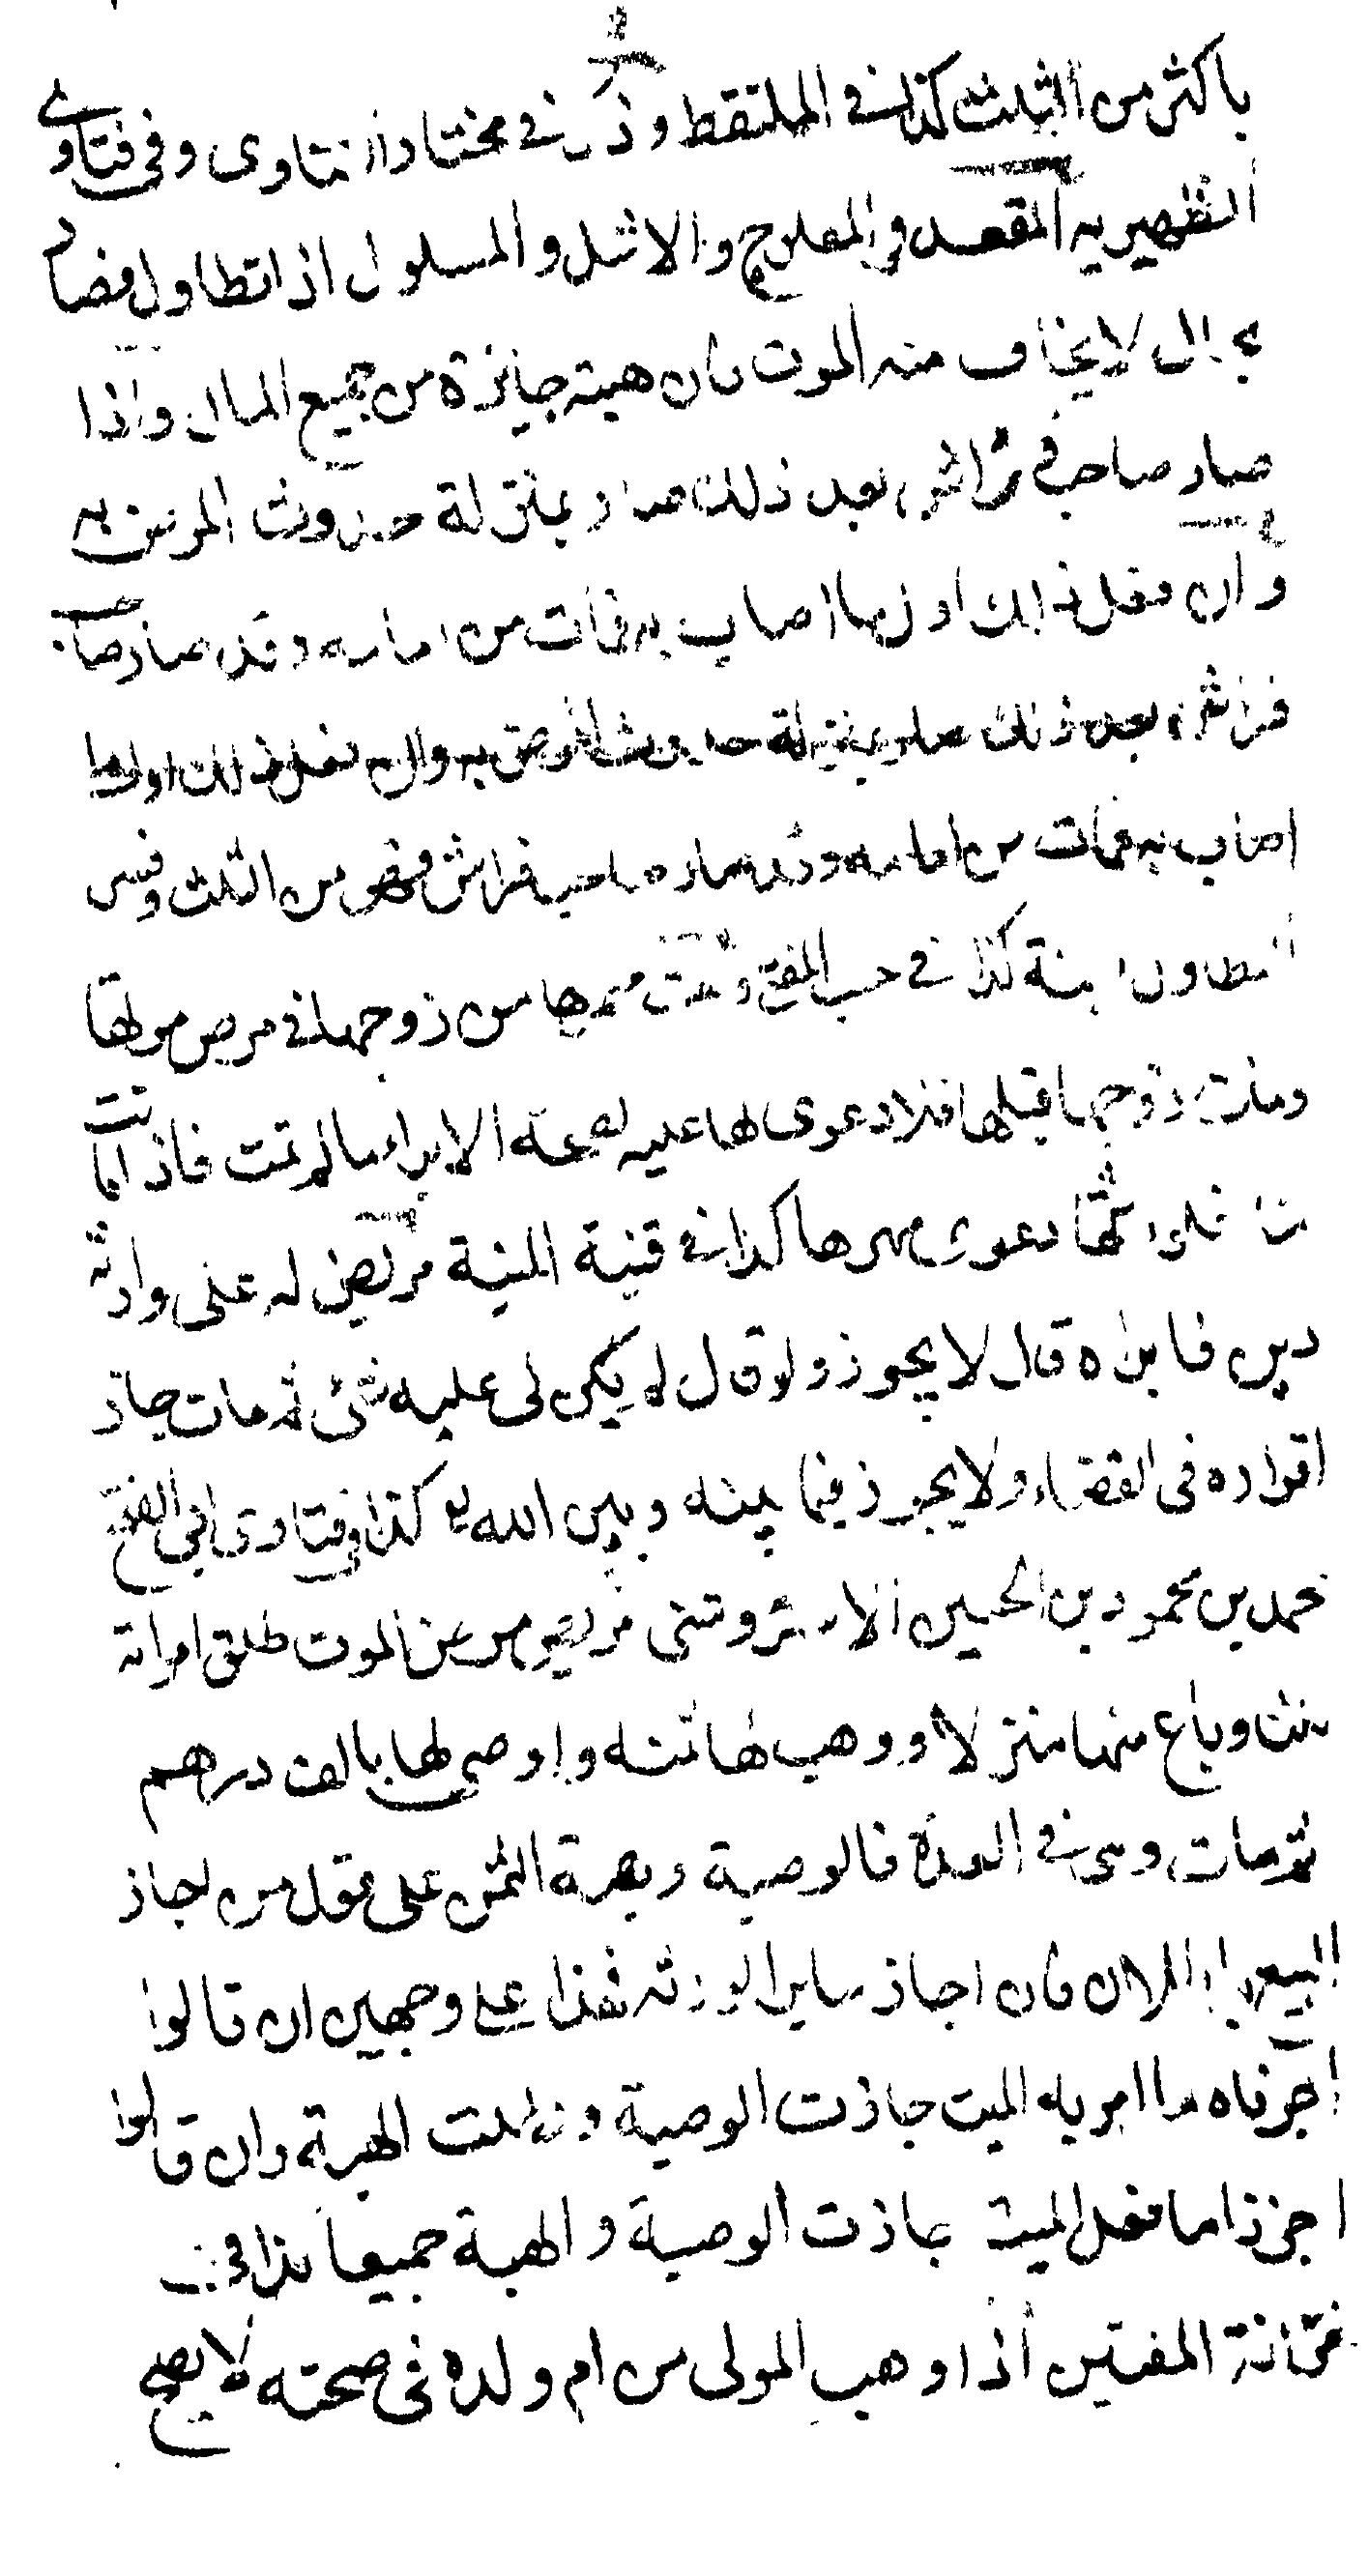 باكثر من الثلث كذا في الملتقط وذكر في مختار الفتاوى وفي فتاوى
الظهيريه المقعد والمفلوج والاشل والمسلول اذا تطاول فصار
بحال لا يخاف منه الموت فان هبته جايزة من جميع المال واذا
صار صاحب فراش بعد ذلك صار بمنزلة حدوث المرض به
وان فعل ذلك اول ما اصابه فمات من ايامه وقد صار صاحب
فراش بعد ذلك صار بمنزلة حدوث المرض به وان فعل ذلك اول ما
اصابه فمات من ايامه وقد صار صاحب فراش فهو من الثلث وفسر
التطاول بسنة كذا في حسب المفتي وهبت مهرها من زوجها في مرض موتها
ومات زوجها قبلها فلا دعوى لها عليه لصحة الابراء ما لم تمت فاذا ماتت
فلورثتها دعوى مهرها كذا في قنية المنية مريض له على وارثه
دين فابراه قال لا يجوز ولو قال لم يكن لي عليه شئ ثم مات جاز
اقراره في القضاء ولا يجوز فيما بينه وبين الله تع كذا في فتاوى ابي الفتح
محمد بن محمود بن الحسين الاستروشني مريض مرض الموت طلق امراته
ثلث وباع منها منزلا ووهب لها ثمنه واوصى لها بالف درهم
ثم مات وهي في العدة فالوصية وبهبة الثمن على قول من اجاز
البيع باطلان فان اجاز ساير الورثه فهذا على وجهين ان قالوا
اجزناه ما امر به الميت جازت الوصية وبطلت الهبة وان قالوا
اجزنا ما فعل الميت جازت الوصية والهبة جميعا كذا في
خزانة المفتين اذا وهب المولى من ام ولده في صحته لا يصح